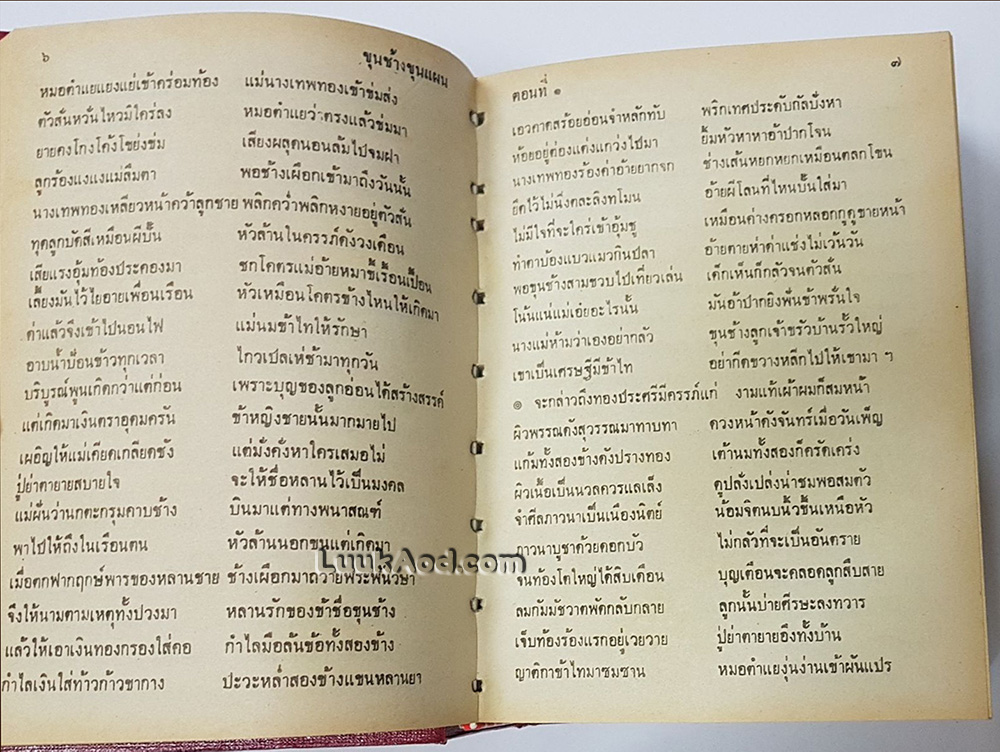 ๖ ขุนช้างขุนแผน
หมอตำแยแยงแย่เข้าคร่อมท้อง แม่นางเทพทองเข้าข่มส่ง
ตัวสั่นหวั่นไหวมิใคร่ลง หมอตำแยว่าตรงแล้วข่มมา
ยายคงโก่งโค้งโขย่งข่ม เสียงผลุดนอนล้มไปจมฝา
ลูกร้องแงงแงแม่ลืมตา พอช้างเผือกเข้ามาถึงวันนั้น
นางเทพทองเหลียวหน้าคว้าลูกชาย พลิกคว่ำพลิกหงายอยู่ตัวสั่น
ทุดลูกบัดสีเหมือนผีปั้น หัวล้านในครรภ์ดังวงเดือน
เสียแรงอุ้มท้องประคองมา ชกโคตรแม่อ้ายหมาขี้เรื้อนเปื้อน
เลี้ยงมันไว้ไยอายเพื่อนเรือน หัวเหมือนโคตรข้างไหนให้เกิดมา
ด่าแล้วจึงเข้าไปนอนไฟ แม่นมข้าไทให้รักษา
อาบน้ำป้อนข้าวทุกเวลา ไกวเปลเห่ช้ามาทุกวัน
บริบูรณ์พูนเกิดกว่าแต่ก่อน เพราะบุญของลูกอ่อนได้สร้างสรรค์
แต่เกิดมาเงินตราอุดมครัน ข้าหญิงชายนั้นมากมายไป
เผอิญให้แม่เคียดเกลียดชัง แต่มั่งคั่งหาใครเสมอไม่
ปู่ย่าตายายสบายใจ จะให้ชื่อหลานไว้เป็นมงคล
แม่ผันว่านกตะกรุมคาบช้าง บินมาแต่ทางพนาสณฑ์
พาไปให้ถึงในเรือนตน หัวล้านนอกขนแต่เกิดมา
เมื่อตกฟากฤกษ์พารของหลานชาย ช้างเผือกมาถวายพระพันวษา
จึงให้นามตามเหตุทั้งปวงมา หลานรักของข้าชื่อขุนช้าง
แล้วให้เอาเงินทองกรองใส่คอ กำไลมือล้นข้อทั้งสองข้าง
กำไลเงินใส่ท้าวก้าวขากาง ปะวะหล่ำสองข้างแขนหลานยา
ตอนที่ ๑ ๗
เอวคาดสร้อยอ่อนจำหลักทับ พริกเทศประดับกัลบังหา
ห้อยอยู่ต่องแต่งแกว่งไปมา ยิ้มหัวหาหาอ้าปากโจน
นางเทพทองร้องด่าอ้ายยากจก ช่างเส้นหยกหยกเหมือนตลกโขน
ยืดไว้ไม่นิ่งคละลิงทโมน อ้ายผีโลนที่ไหนปั้นใส่มา
ไม่มีใจที่จะใคร่เข้าอุ้มชู เหมือนค่างครอกหลอกกูดูขายหน้า
ทำตาบ้องแบวแมวกินปลา อ้ายตายห่าด่าแช่งไม่เว้นวัน
พอขุนช้างสามขวบไปเที่ยวเล่น เด็กเห็นก็กลัวจนตัวสั่น
โน้นแน่แม่เอ๋ยอะไรนั้น มันอ้าปากยิงฟันข้าพรั่นใจ
นางแม่ห้ามว่าเองอย่ากลัว ขุนช้างลูกเจ้าขรัวบ้านรั้วใหญ่
เขาเป็นเศรษฐีมีข้าไท อย่ากีดขวางหลีกไปให้เขามา ฯ
๏ จะกล่าวถึงทองประศรีมีครรภ์แก่ งามแท้เผ้าผมก็สมหน้า
ผิวพรรณดังสุวรรณมาทาบทา ดวงหน้าดังจันทร์เมื่อวันเพ็ญ
แก้มทั้งสองข้างดังปรางทอง เต้านมทั้งสองก็ครัดเคร่ง
ผิวเนื้อเป็นนวลควรแลเล็ง ดูปลั่งเปล่งน่าชมพอสมตัว
จำศีลภาวนาเป็นเนืองนิตย์ น้อมจิตนบนิ้วขึ้นเหนือหัว
ภาวนาบูชาด้วยดอกบัว ไม่กลัวที่จะเป็นอันตราย
จนท้องโตใหญ่ได้สิบเดือน บุญเตือนจะคลอดลูกสืบสาย
ลมกัมมัชวาตพัดกลับกลาย ลูกนั้นบ่ายศีรษะลงทวาร
เจ็บท้องร้องแรกอยู่เวยวาย ปู่ย่าตายายอึงทั้งบ้าน
ญาติกาข้าไทมาซมซาน หมอตำแยงุ่นง่านเข้าผันแปร
LuukAod.com